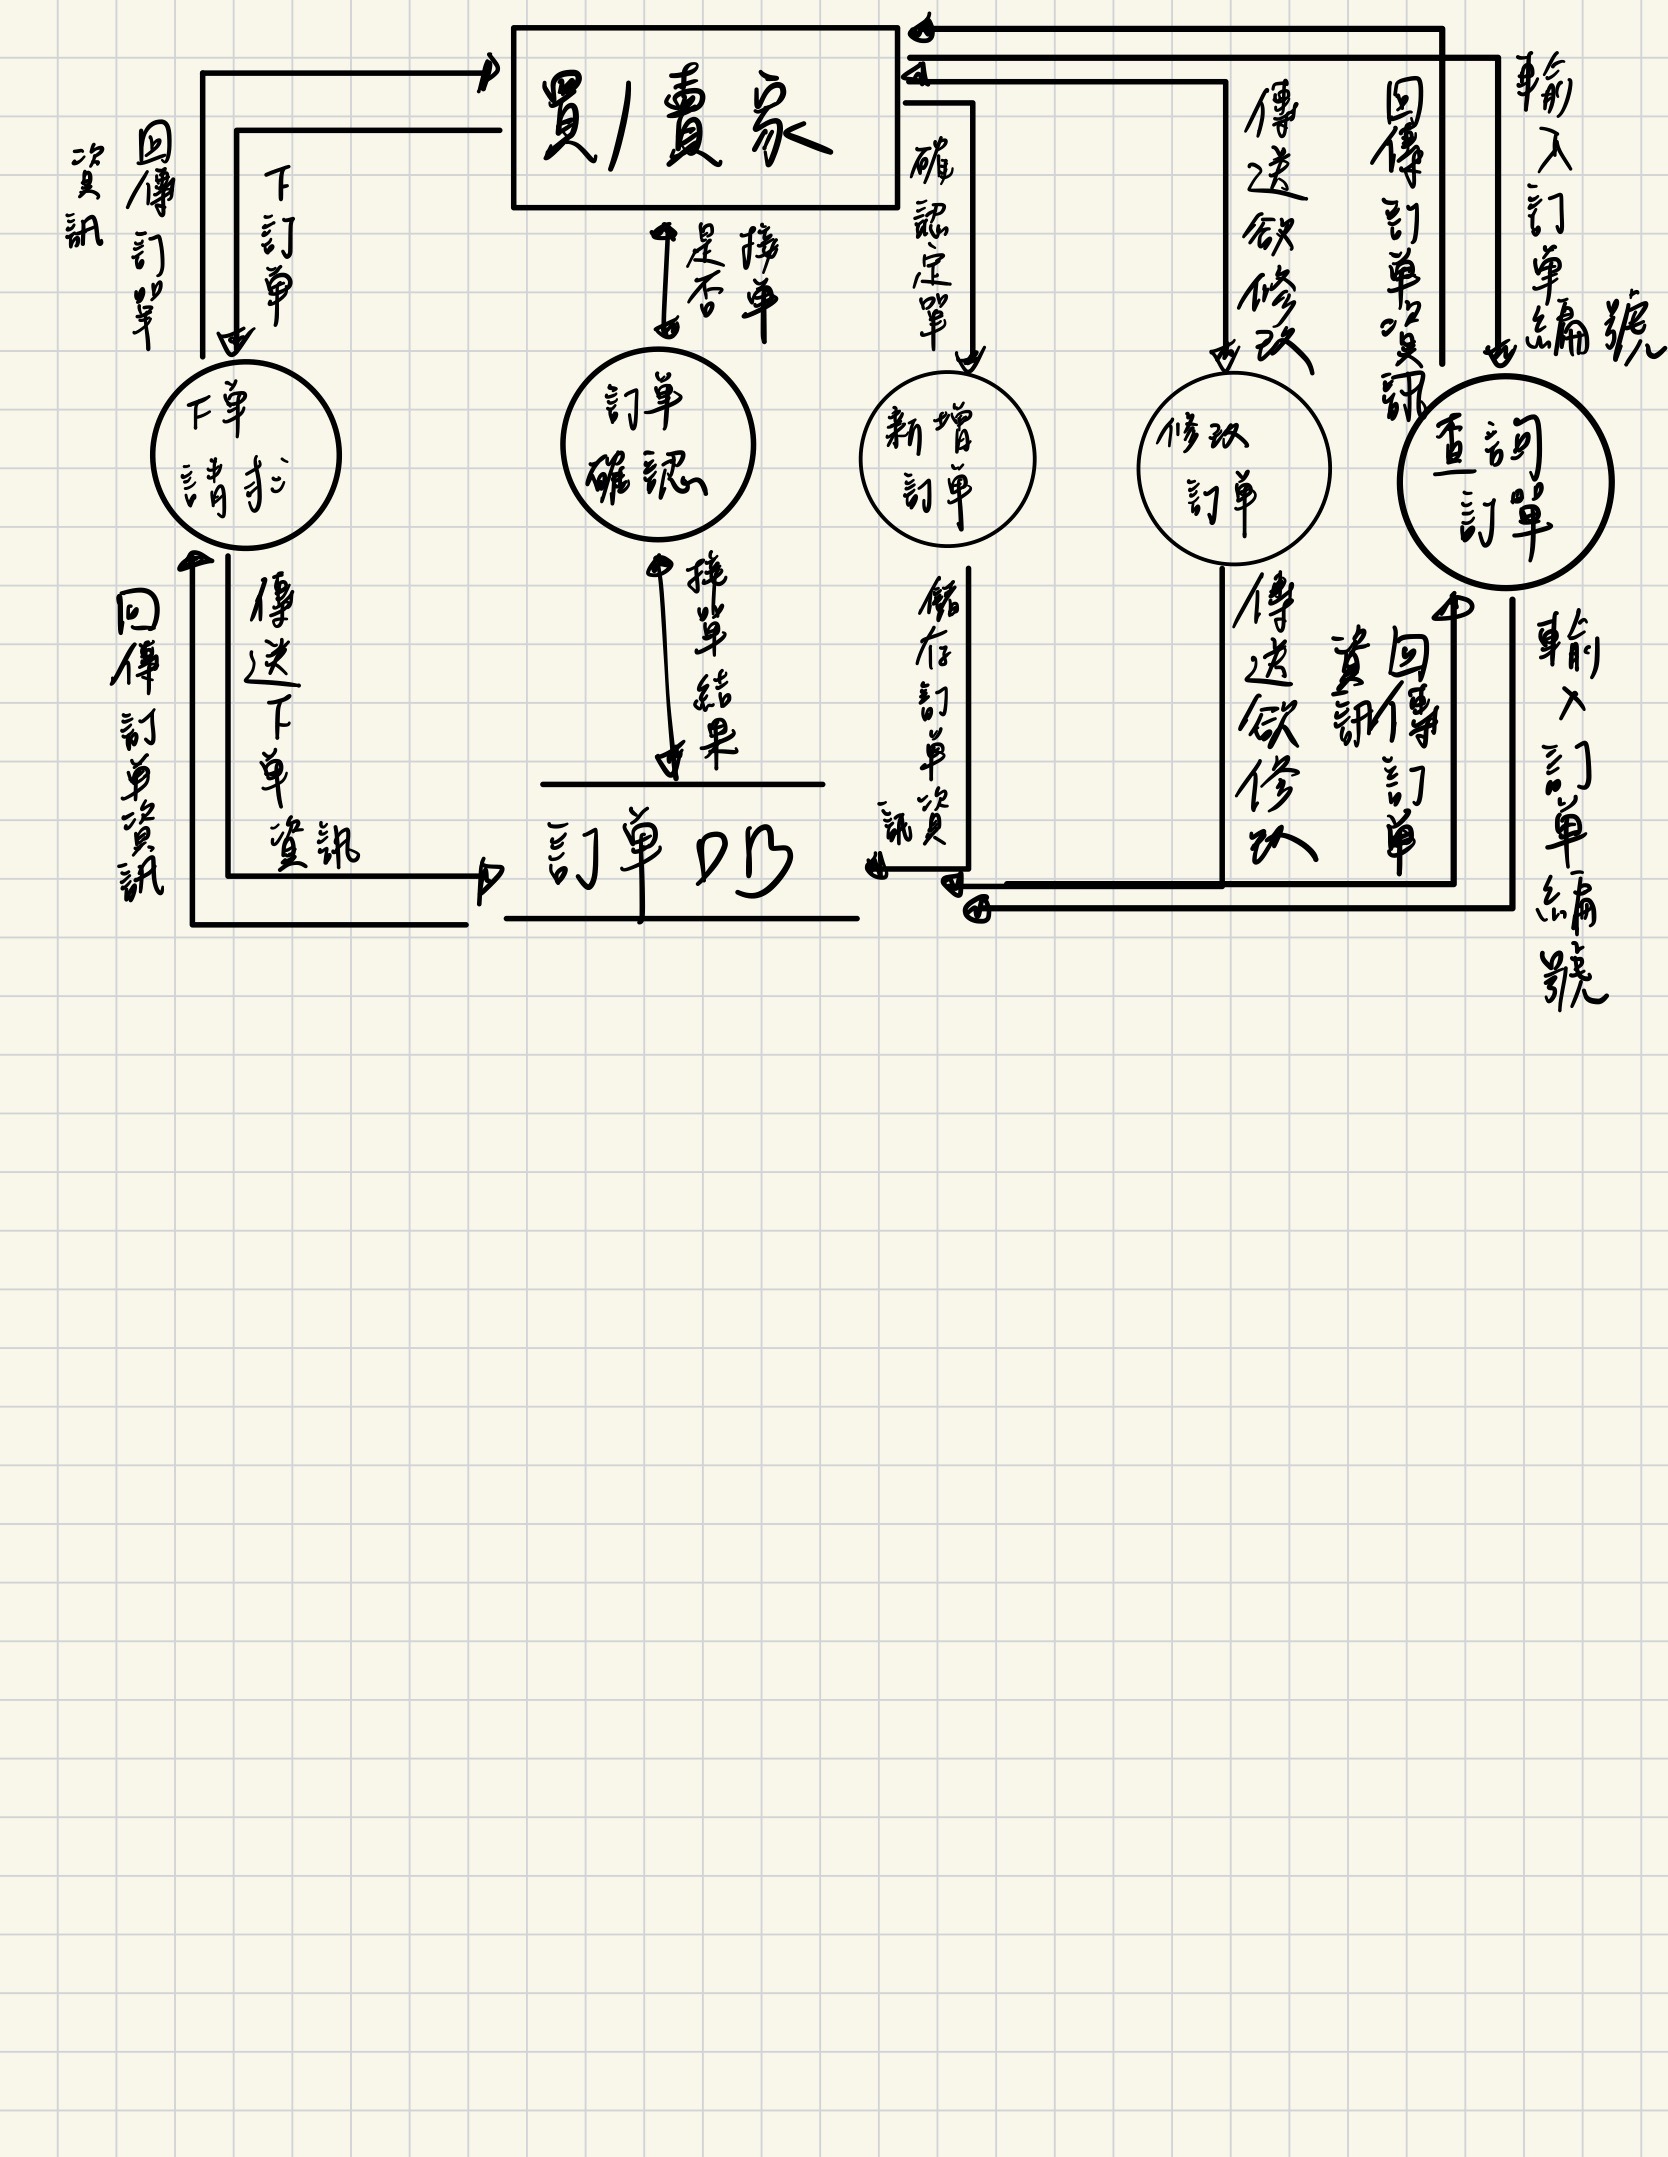 買/賣家
回傳訂單
資訊
下訂單
是否
接單
確認定單
傳送欲修改
回傳訂單資訊
輸入訂單編號
下單
請求
訂單
確認
新增
訂單
修改
訂單
查詢
訂單
回傳訂單資訊
傳送下單
資訊
接單結果
儲存訂單資
訊
傳送欲修改
回傳訂單
資訊
輸入訂單編號
訂單DB